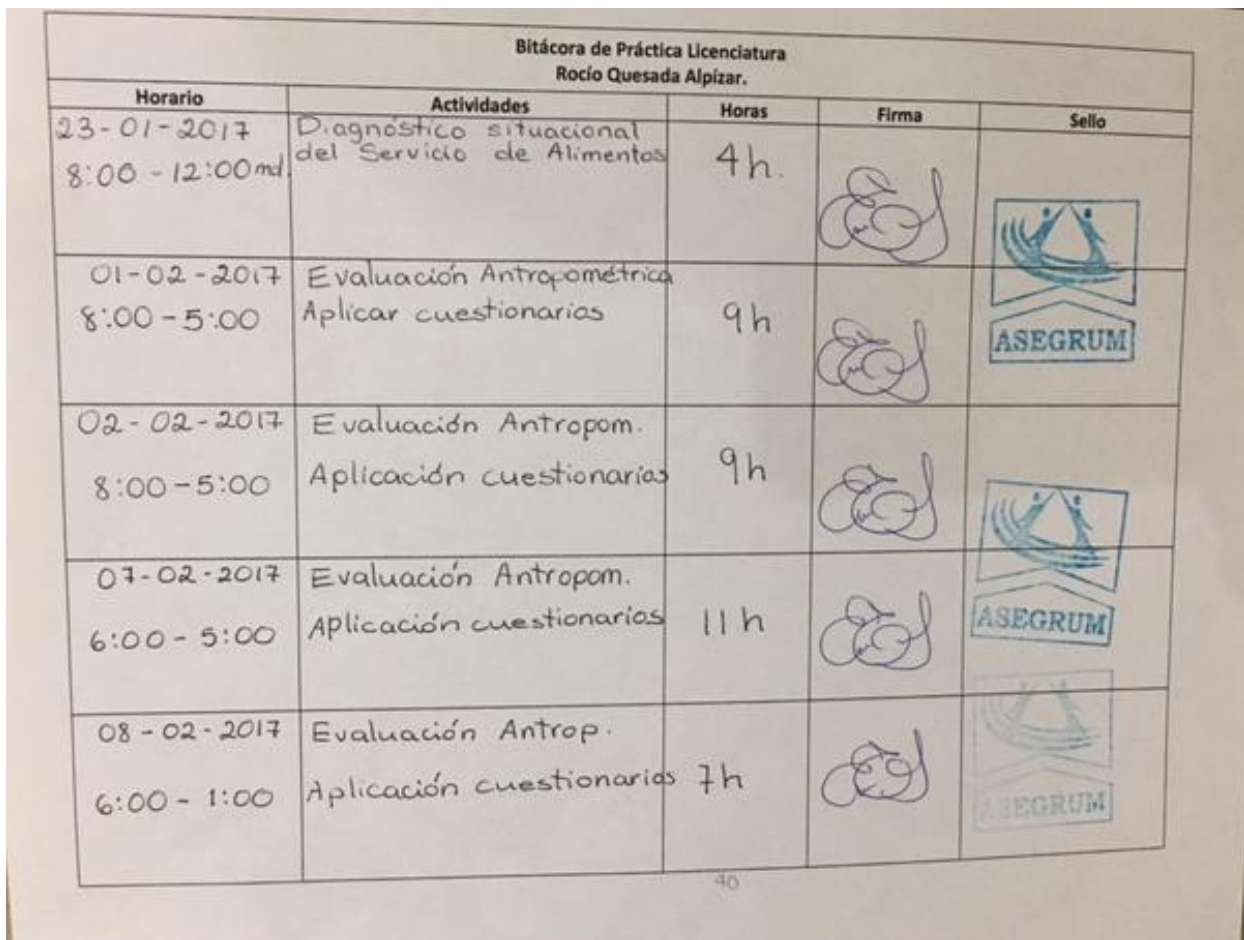 Bitácora de Práctica Licenciatura
Rocío Quesada Alpízar.
Horario Actividades Horas Firma Sello
23-01-2017 Diagnóstico situacional
8:00 - 12:00 md. del Servicio de Alimentos 4h.
01-02-2017 Evaluación Antropométrica
8:00 - 5:00 Aplicar cuestionarios 9h
ASEGRUM
02-02-2017 Evaluación Antropom.
8:00 - 5:00 Aplicación cuestionarios 9h
07-02-2017 Evaluación Antropom.
6:00 - 5:00 Aplicación cuestionarios 11 h
ASEGRUM
08-02-2017 Evaluación Antrop.
6:00 - 1:00 Aplicación cuestionarios 7h
ASEGRUM
40